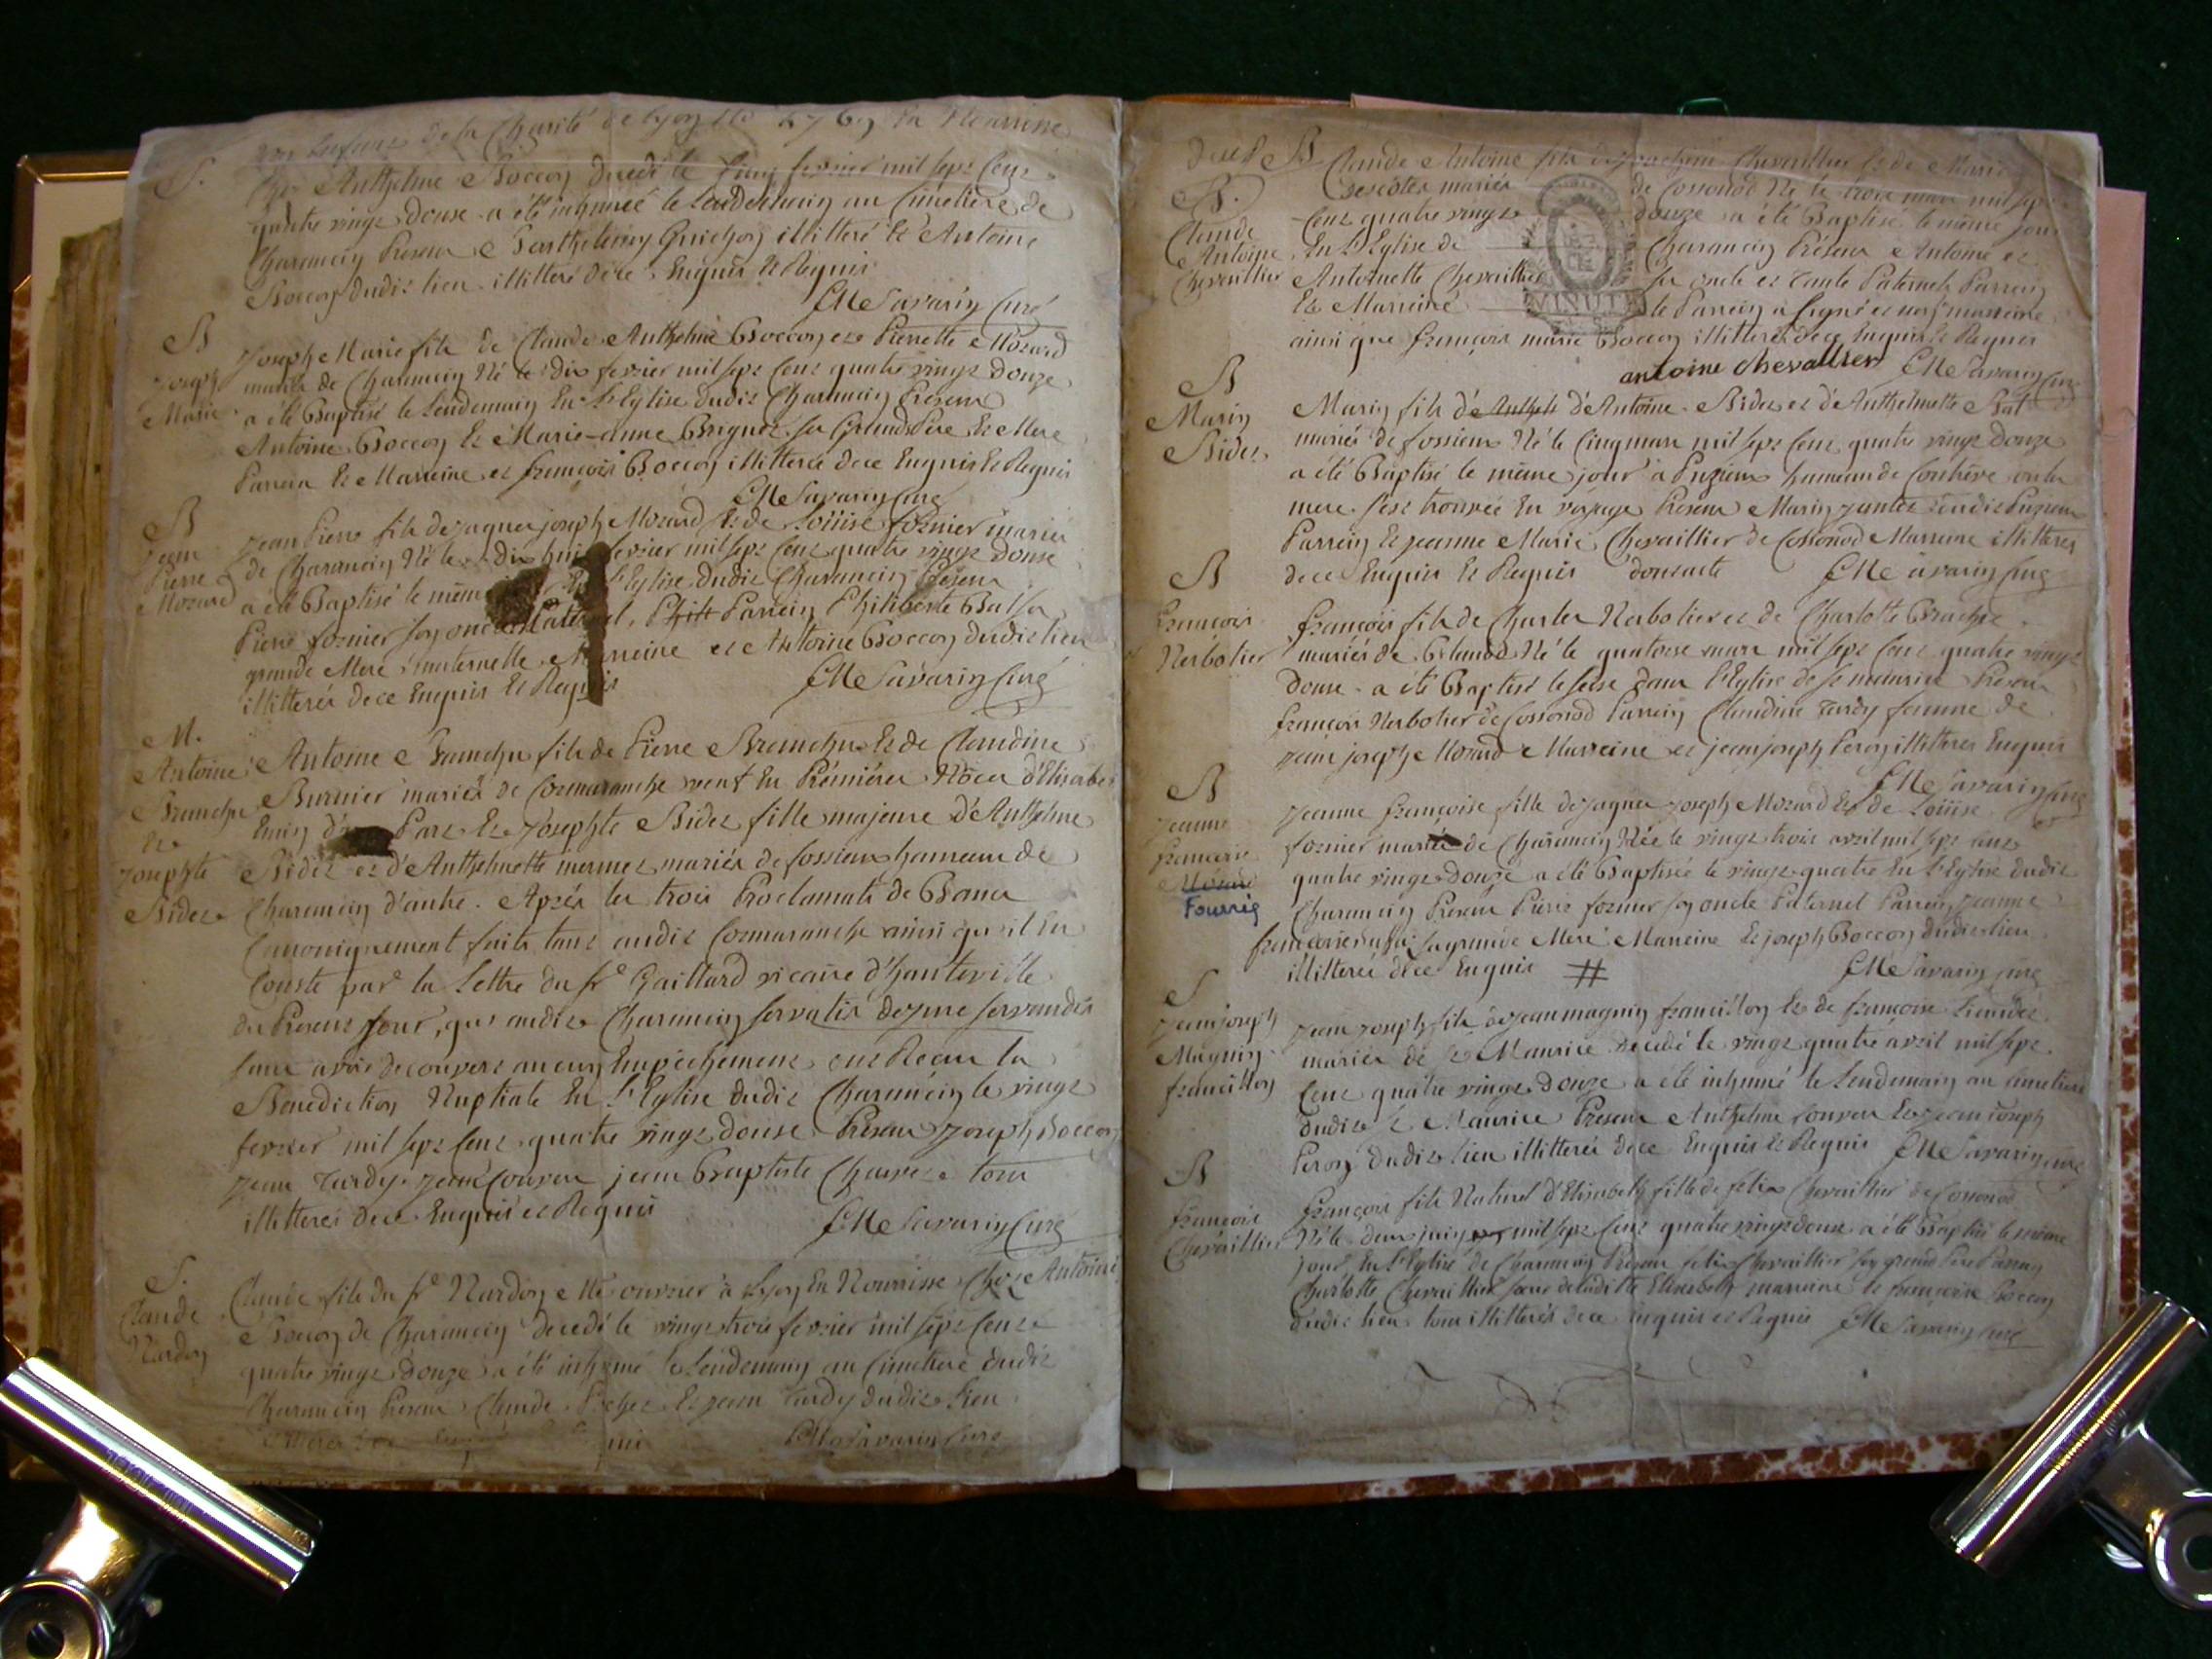 Un Enfant de la Charité de Lyon 1769 En Nourrice
S.
chez Anthelme Boccon decedé le cinq fevrier mil sept cent
quatre vingt douse a été inhumé le lendemain au Cimetiere de
Charancin Present Barthelemy Guichon illitteré et Antoine
Boccon dudit lieu illitteré de ce Enquis et Requis
CMe Savarin Curé
B
Joseph
Marie
Joseph Marie fils de Claude Anthelme Boccon et Pierrette Mozard
mariés de Charancin Né le dix fevrier mil sept cent quatre vingt douze
a été Baptisé le lendemain En l'Eglise dudit Charancin Present
Antoine Boccon et Marie-anne Brignet ses Grands Pere et Mere
Parrein et Marreine et françois Boccon illitterés de ce Enquis et Requis
CMe Savarin Curé
B
Jean
Pierre
Mozard
Jean Pierre fils de Jaques joseph Mozard et de Loüise fornier mariés
de Charancin Né le dix huit fevrier mil sept cent quatre vingt douse
a été Baptisé le même En l'Eglise dudit Charancin Present
Pierre fornier son oncle Maternel, Phili Parrein Philiberte Bal sa
grande Mere maternelle Marreine et Antoine Boccon dudit lieu
illitterés de ce Enquis et Requis CMe Savarin Curé
M.
Antoine
Branche
et
Josephte
Bidet
Antoine Branche fils de Pierre Branche et de Claudine
Burnier mariés de Cormaranche veuf En Premières Nôces d'Elisabet
Emin d'une Part et Josephte Bidet fille majeure D'Anthelme
Bidet et d'Anthelmette mermet mariés de fossieux hameau de
Charancin d'autre. Après les trois Proclamats de Bancs
Canoniquement faits tant audit Cormaranche ainsi qu'il En
Conste par la Lettre du sr Gaillard vicaire d'hauteville
du Present Jour, que audit Charancin servatis de jure servandis
sans avoir decouvert aucun Empêchement ont Recu la
Benediction Nuptiale En l'Eglise dudit Charancin le vingt
fevrier mil sept cent quatre vingt douse Present Joseph Boccon
Jean Tardy Jean Couvou jean Baptiste Charvet tous
illitterés de ce Enquis et Requis CMe Savarin Curé
S.
Claude
Nardon
Claude fils du sr Nardon Me ouvrier à Lyon En Nourrisse Chez Antoine
Boccon de Charancin decedé le vingt trois fevrier mil sept cent
quatre vingt douze a été inhumé le lendemain au Cimetiere dudit
Charancin Present Claude Pochet et jean Tardy dudit lieu
CMe Savarin Curé
B
Claude
Antoine
Chevaillier
Claude Antoine fils de Joachim Chevaillier et de Marie
Descôtes mariés de Cossonod Né le trois mars mil sept
Cent quatre vingt douze a été Baptisé le même jour
En l'Eglise de Charancin Present Antoine et
Antoinette Chevaillier ses oncle et tante Paternels Parrein
et Marreine le Parrein a signé et non marreine
ainsi que françois marie Boccon illitterés de ce Enquis et Requis
MINUTE
antoine chevallier CMe Savarin Curé
B
Marin
Bidet
Marin fils d'Anthel d'Antoine Bidet et d'Anthelmette Bal
mariés de fossieux Né le Cinq mars mil sept cent quatre vingt douze
a été Baptisé le même jour à Puzieux hameau de Conthève ou la
mere s'est trouvée En voyage Present Marin Juntet dudit Puzieux
Parrein et Jeanne Marie Chevaillier de Cossonod Marreine illitterés
de ce Enquis et Requis CMe Savarin Curé
B
François
Nerbolier
françois fils de Charles Nerbolier et de Charlotte Branche
mariés de Né le quatorse mars mil sept cent quatre vingt
douse a été Baptisé le seise dans l'Eglise de St maurice Present
françois Nerbolier de Cossonod Parrein Claudine Tardy femme de
jean joseph Mozard Marreine et jean joseph Peron illitterés Enquis
CMe Savarin Curé
B
Jeanne
françoise
Mozard
Fournié
Jeanne françoise fille de Jaques Joseph Mozard et de Loüise
fornier mariés de Charancin Née le vingt trois avril mil sept cent
quatre vingt douze a été Baptisée le vingt quatre En l'Eglise dudit
Charancin Present Pierre fornier son oncle Paternel Parrein Jeanne
françoise sa grande Mere Mareine et joseph Boccon dudit lieu
illitterés de ce Enquis # CMe Savarin Curé
S
Jean joseph
Magnin
francillon
Jean Joseph fils de Jean magnin francillon et de françoise
mariés de St Maurice decedé le vingt quatre avril mil sept
Cent quatre vingt douze a été inhumé le lendemain au cimetiere
dudit St Maurice Present Anthelme Couvou et Jean Joseph
Peron dudit lieu illitterés de ce Enquis et Requis CMe Savarin curé
B
François
Chevaillier
françois fils Naturel d'Elisabeth fille de felix Chevaillier de Cossonod
Né le deux juin mil sept cent quatre vingt douse a été Baptisé le même
jour En l'Eglise de Charancin Present felix Chevaillier son grand Pere Parrein
Charlotte Chevaillier soeur de ladite Elisabeth marreine et françoise Boccon
dudit lieu tous illitterés de ce enquis et Requis CMe Savarin Curé